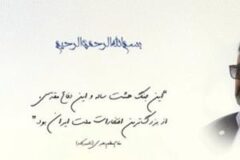 بسم الله الرحمن الرحیم
"این جنگ هشت ساله و این دفاع مقدس
از بزرگترین افتخارات ملت ایران بود"